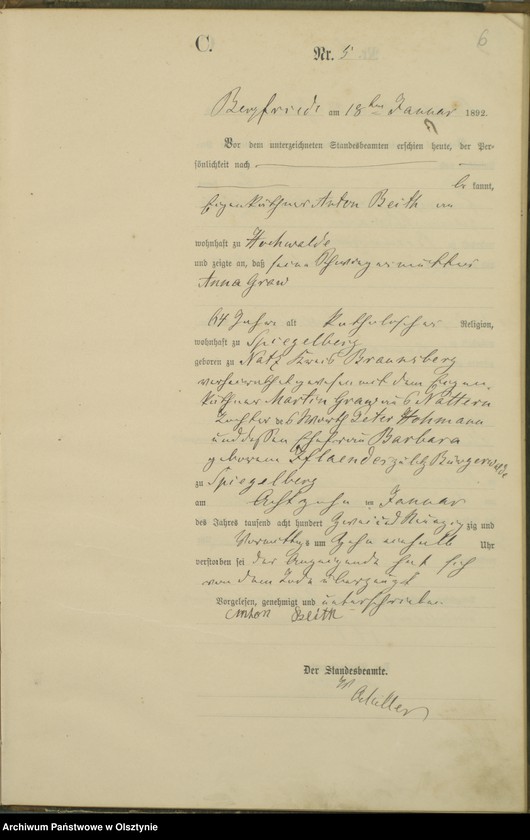 6
C.
Nr. 5
Bergfriede am 18ten Januar 1892.
Vor dem unterzeichneten Standesbeamten erschien heute, der Per-
sönlichkeit nach
be kannt,
Eigenkäthner Anton Beith
wohnhaft zu Hochwalde
und zeigte an, daß seine Schwiegermutter
Anna Graw
64 Jahre alt katholischer Religion,
wohnhaft zu Spiegelberg
geboren zu Natz Kreis Braunsberg
verheirathet gewesen mit dem Eigen-
käthner Martin Graw aus Nattern
Tochter des Wirth Peter Hohmann
und dessen Ehefrau Barbara
geborene
zu Spiegelberg
am Achtzehn ten Januar
des Jahres tausend acht hundert Zweiundneunzig zig und
Vormittags um Zehn einhalb Uhr
verstorben sei der Anzeigende hat sich
von dem Tode überzeugt
Vorgelesen, genehmigt und unterschrieben
Anton Beith
Der Standesbeamte.
Archiwum Państwowe w Olsztynie